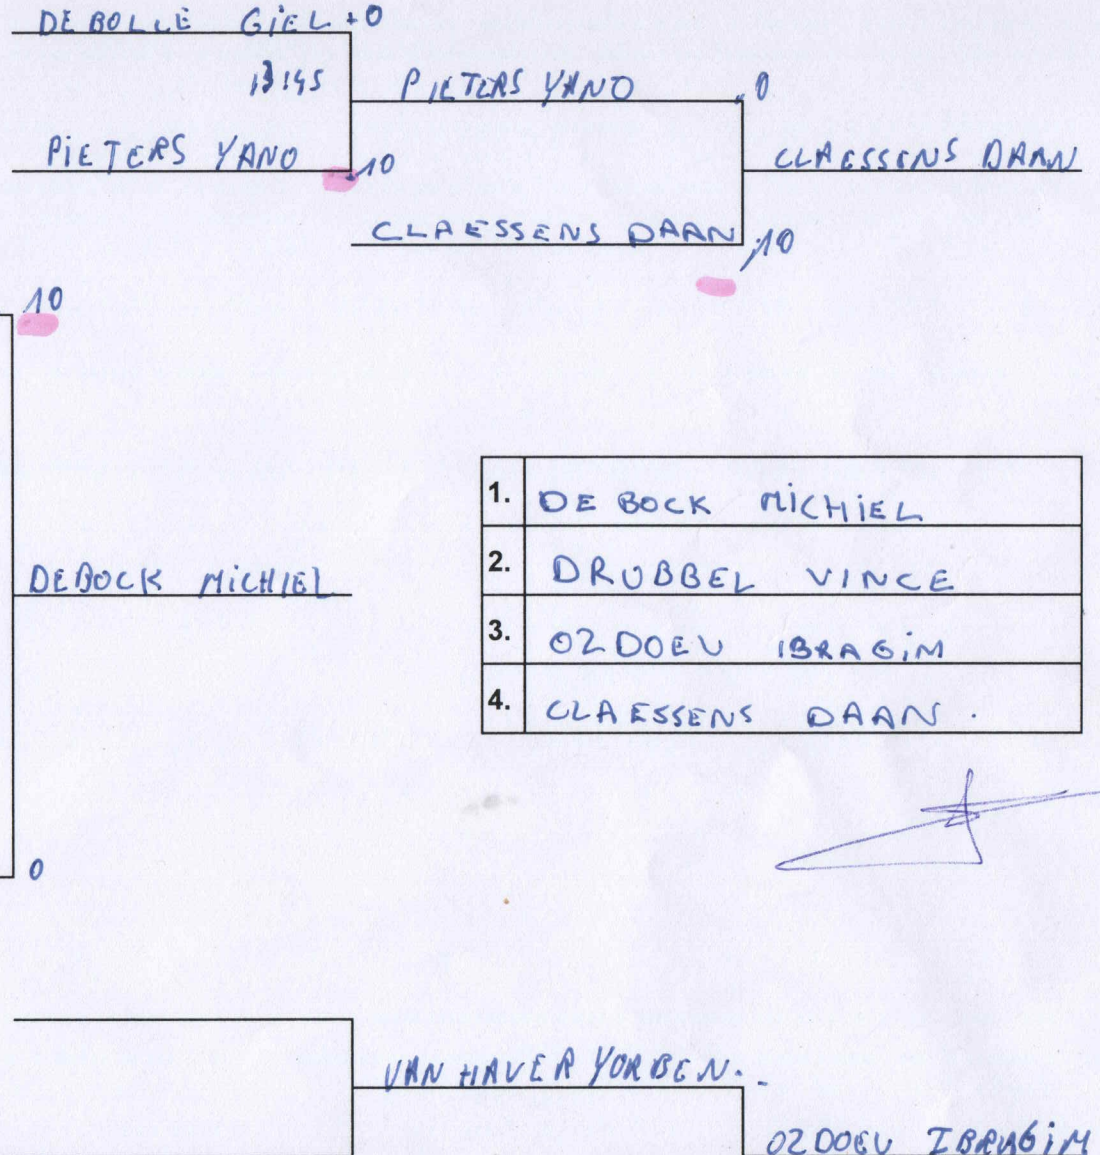 DE BOLLE GIEL 0
PIETERS YANO 0
PIETERS YANO 10
CLAESSENS DAAN
CLAESSENS DAAN 10
10
1. DE BOCK MICHIEL
DEBOCK MICHIEL
2. DRUBBEL VINCE
3. OZDOEV IBRAGIM
4. CLAESSENS DAAN.
0
VAN HAVER YORBEN.
OZDOEV IBRAGIM